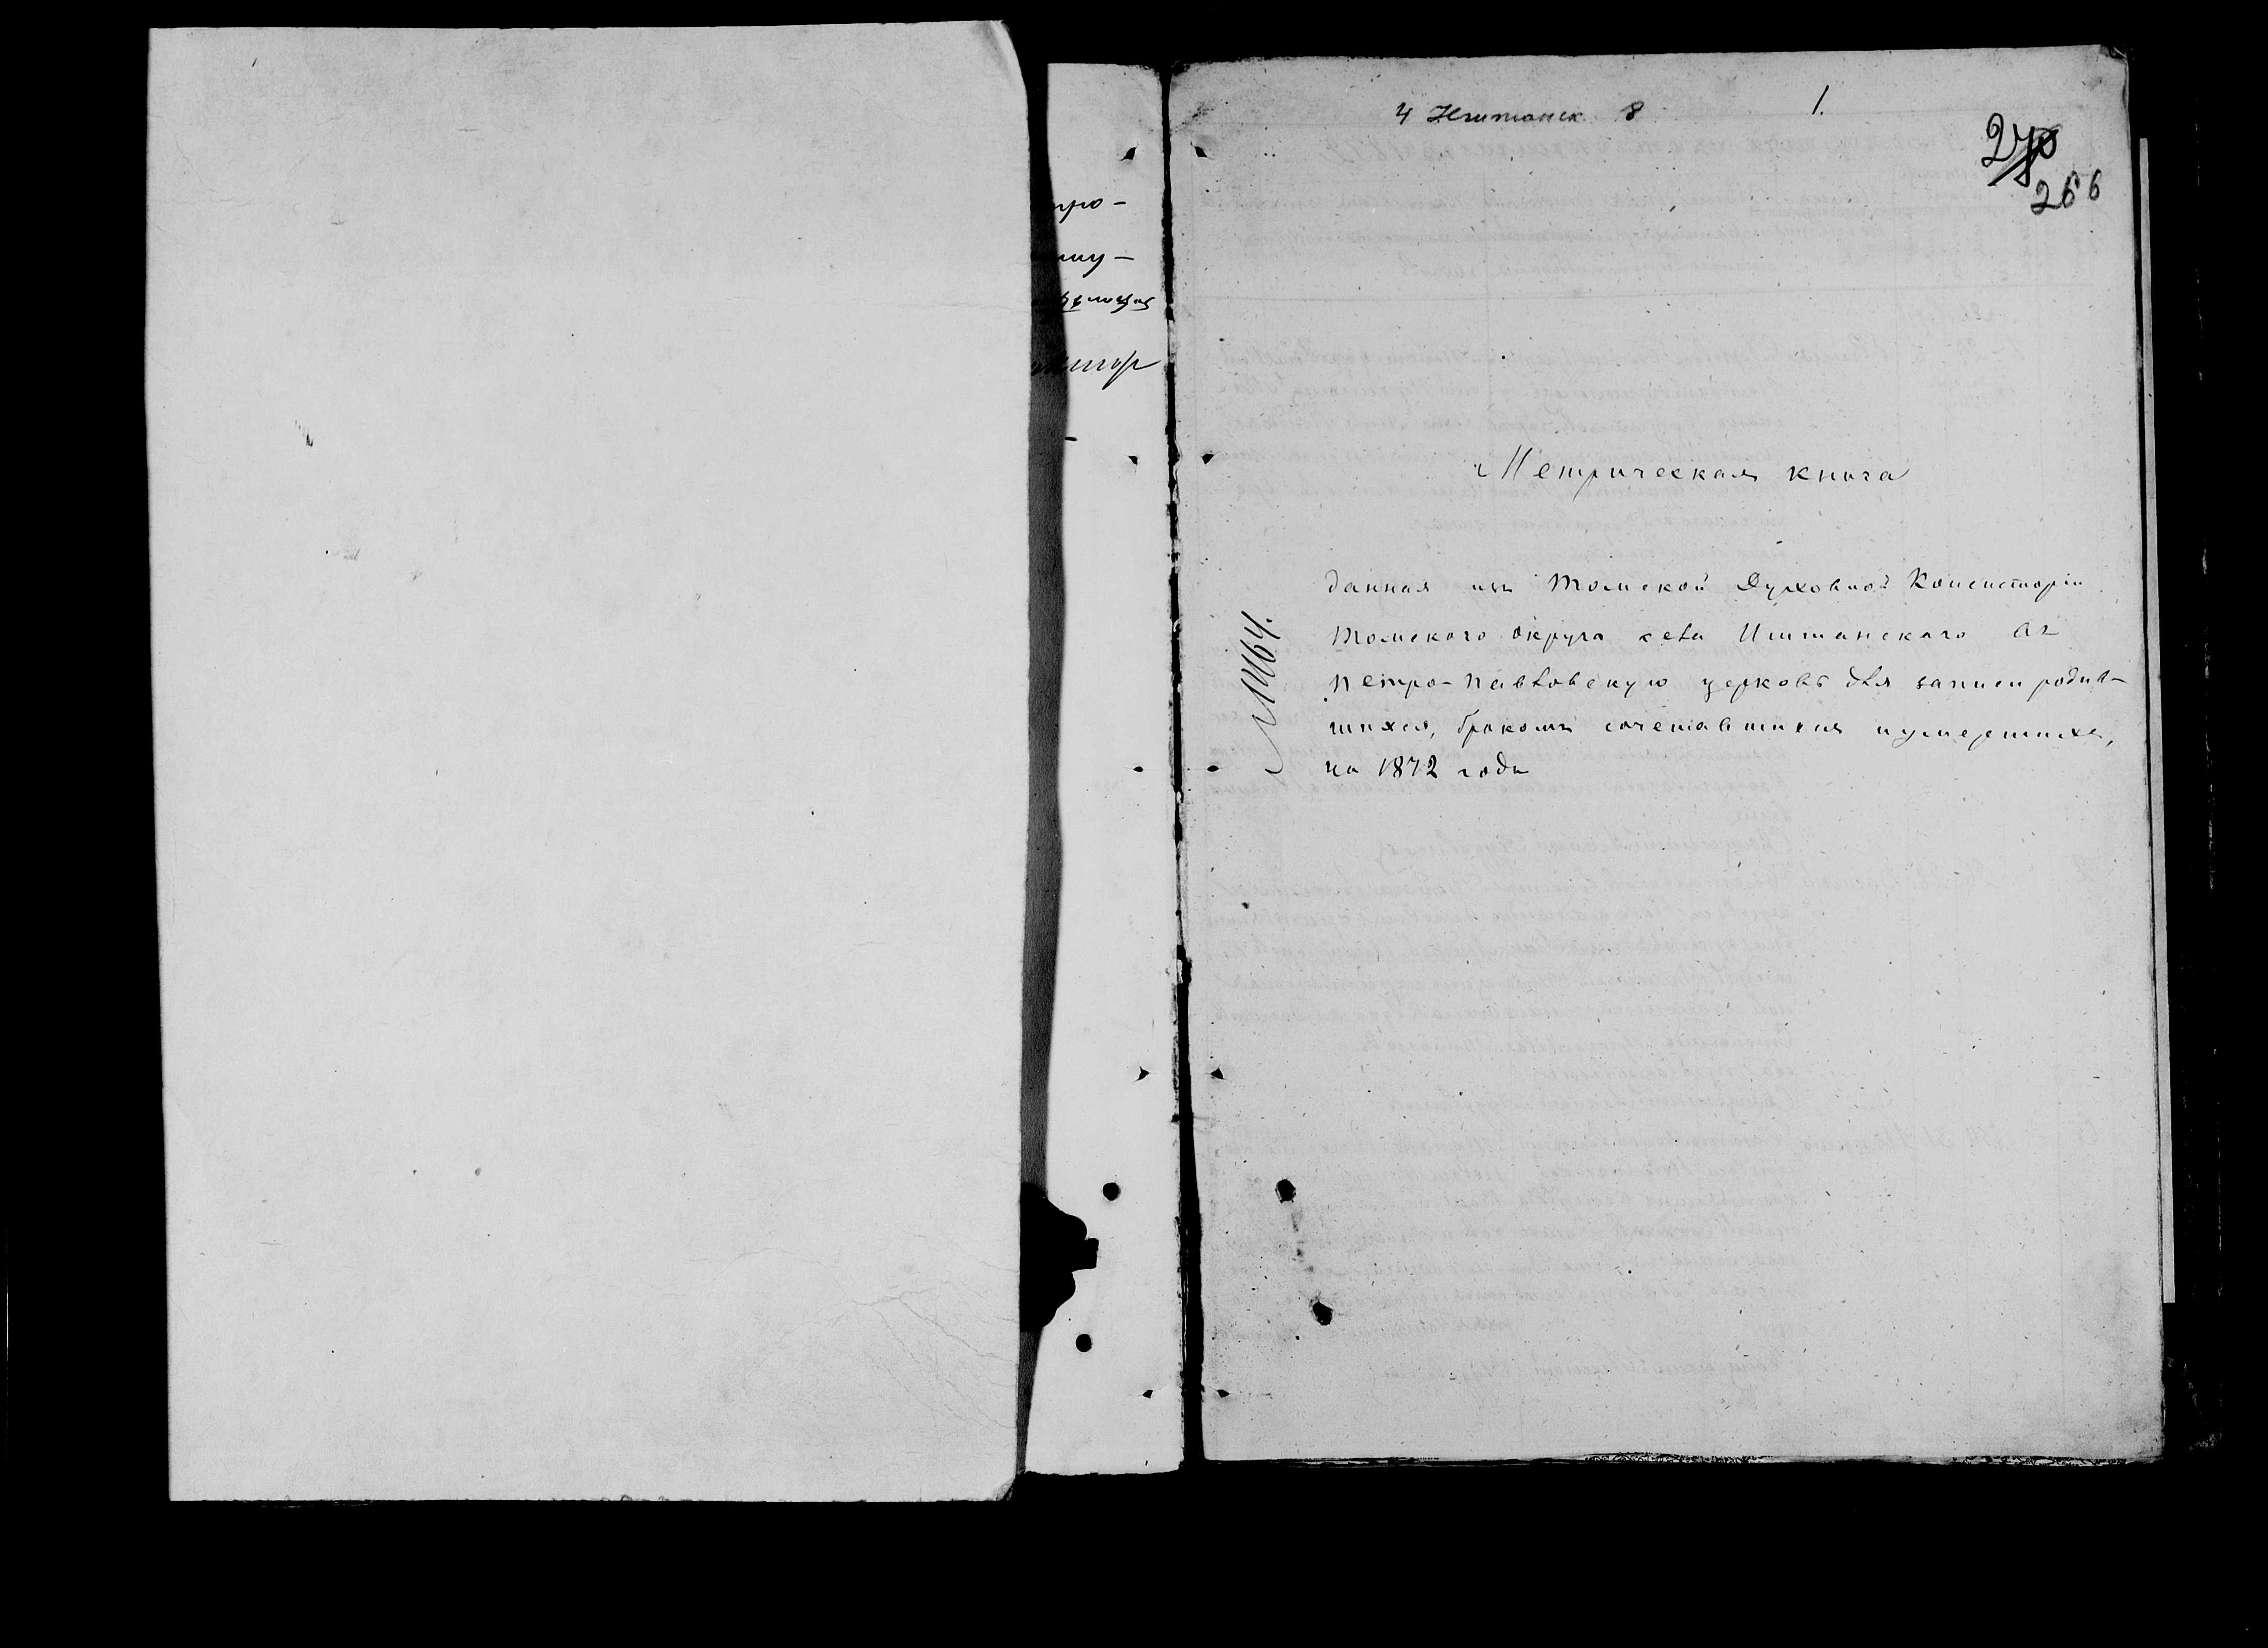 4 Иштанск 8 1.
270
266
про-
шу-
Метрическая книга
данная изъ Томской Духовной Консисторіи
Томскаго округа села Иштанскаго въ
Петро-Павловскую церковь для записи родив-
шихся, бракомъ сочетавшихся и умершихъ,
на 1872 годъ
№ 64.